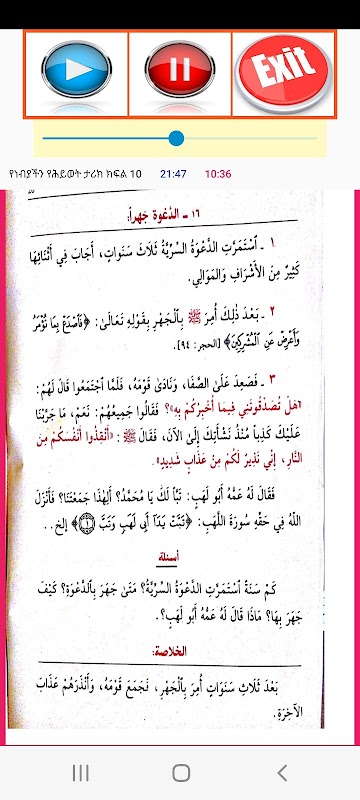 Exit
የነብያችን የሕይወት ታሪክ ክፍል 10 21:47 10:36
١٦ - الدَّعْوَة جَهراً:
١ - ٱسْتَمَرَّتِ الدَّعْوَةُ السِّرِّيَّةُ ثَلَاثَ سَنَوَاتٍ، أَجَابَ فِي أَثْنَائِهَا
كَثِيْرٌ مِنَ الأَشْرَافِ وَالمَوَالِي.
٢ - بَعْدَ ذٰلِكَ أُمِرَ ﷺ بِٱلْجَهْرِ بِقَوْلِهِ تَعَالَىٰ: ﴿فَٱصْدَعْ بِمَا تُؤْمَرُ
وَأَعْرِضْ عَنِ ٱلْمُشْرِكِينَ﴾ [الحجر: ٩٤].
٣ - فَصَعِدَ عَلَىٰ الصَّفَا، وَنَادَىٰ قَوْمَهُ، فَلَمَّا ٱجْتَمَعُوا قَالَ لَهُمْ:
«هَلْ تُصَدِّقُونَنِي فِيمَا أُخْبِرُكُمْ بِهِ»؟ فَقَالُوا جَمِيعُهُمْ: نَعَمْ، مَا جَرَّبْنَا
عَلَيْكَ كَذِباً مُنْذُ نَشْأَتِكَ إِلَىٰ الآنَ، فَقَالَ ﷺ: «أَنْقِذُوا أَنْفُسَكُمْ مِنَ
النَّارِ، إِنِّي نَذِيرٌ لَكُمْ مِنْ عَذَابٍ شَدِيدٍ».
فَقَالَ لَهُ عَمُّهُ أَبُو لَهَبٍ: تَبّاً لَكَ يَا مُحَمَّدُ؟ أَلِهٰذَا جَمَعْتَنَا؟ فَأَنْزَلَ
اللَّهُ فِي حَقِّهِ سُورَةَ اللَّهَبِ: ﴿تَبَّتْ يَدَآ أَبِي لَهَبٍ وَتَبَّ ۝١﴾ إلخ..
أسئلة
كَمْ سَنَةً ٱسْتَمَرَّتِ الدَّعْوَةُ السِّرِّيَّةُ؟ مَتَىٰ جَهَرَ بِٱلدَّعْوَةِ؟ كَيْفَ
جَهَرَ بِهَا؟ مَاذَا قَالَ لَهُ عَمُّهُ أَبُو لَهَبٍ؟.
الخلاصة:
بَعْدَ ثَلَاثِ سَنَوَاتٍ أُمِرَ بِٱلْجَهْرِ، فَجَمَعَ قَوْمَهُ، وَأَنْذَرَهُمْ عَذَابَ
الآخِرَةِ.